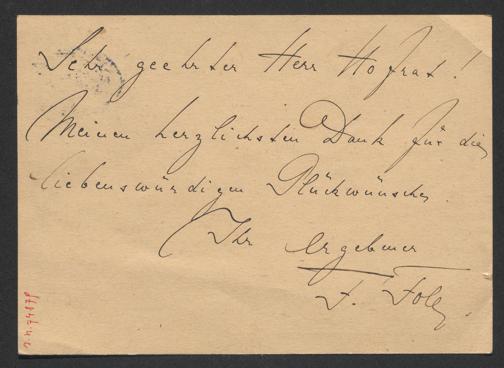 Sehr geehrter Herr Hofrat!
Meinen herzlichsten Dank für die
liebenswürdigen Glückwünsche.
Ihr ergebener
F.